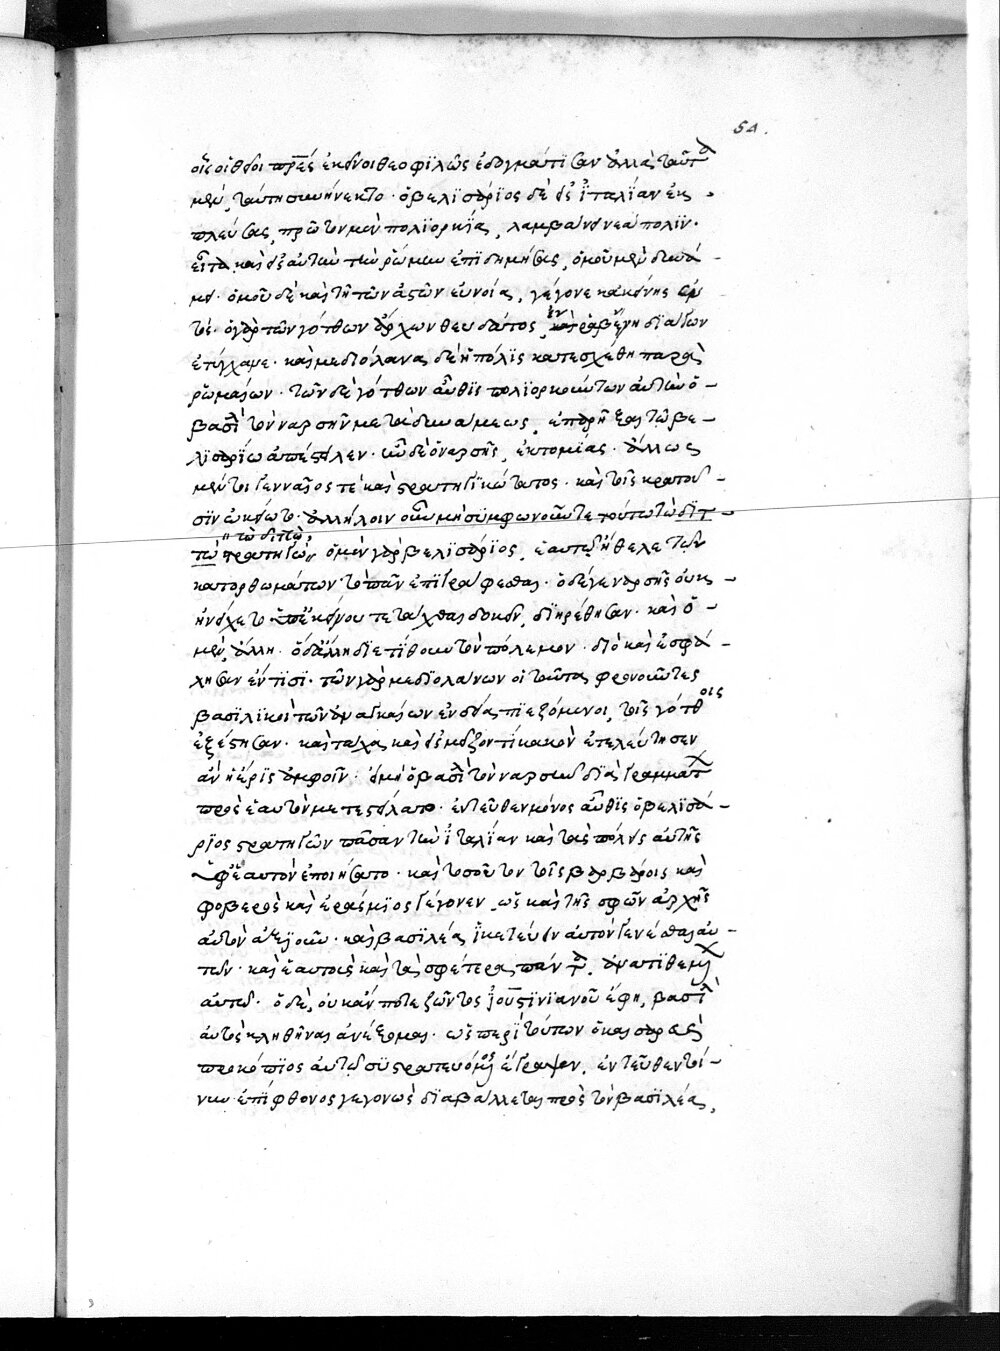 54.
οἷς οἱ θεῖοι πρ̅ε̅ς ἐκεῖνοι θεοφιλῶς ἐδογμάτισαν ἀλλὰ ταῦτα
μὲν, ταύτῃ συνηνέχθη. ὁ βελισάριος δὲ ἐς ἰταλίαν ἐκ
πλεύσας, πρῶτον μὲν πολιορκίᾳ, λαμβάνει νεάπολιν.
εἶτα καὶ ἐς αὐτὴν τὴν ῥώμην ἐπιδημήσας, ὁμοῦ μὲν δυνά-
μει. ὁμοῦ δὲ καὶ τῇ τῶν ἀστῶν εὐνοίᾳ, γέγονε κἀκείνης
ὁ γὰρ τῶν γότθων ἄρχων θευδάτος, ἐν ῥαβέννῃ διάγων
ἐτύγχανε. καὶ μεδιόλανα δὲ ἡ πόλις κατεσχέθη παρὰ
ῥωμαίων. τῶν δὲ γότθων αὖθις πολιορκούντων αὐτὴν ὁ
βασιλ τὸν ναρσῆν μετὰ δυνάμεως, ἐπαρῆξαι τῷ βε-
λισαρίῳ ἀπέστειλεν. ἦν δὲ ὁ ναρσῆς, ἐκτομίας. ἄλλως
μέντοι γενναῖός τε καὶ στρατηγικώτατος. καὶ τοῖς κρατοῦ-
σιν ᾠκείωτο. ἀλλήλοιν οὖν μὴ συμφωνοῦντε τούτω τὼ διτ-
τὼ στρατηγώ, τὼ διττώ, ὁ μὲν γὰρ βελισάριος, ἑαυτῷ ἤθελε τῶν
κατορθωμάτων τὸ πᾶν ἐπιγράφεσθαι. ὁ δέ γε ναρσῆς οὐκ
ἠνείχετο ὑπ' ἐκείνου τετάχθαι δοκεῖν, διῃρέθησαν. καὶ ὁ
μὲν, ἄλλῃ. ὁ δ' ἄλλῃ διετίθουν τὸν πόλεμον. διὸ καὶ ἐσφά-
λησαν ἔν τισι. τῶν γὰρ μεδιολάνων οἱ ταῦτα φρονοῦντες
βασιλικοὶ τῶν ἀναγκαίων ἐνδείᾳ πιεζόμενοι, τοῖς γότθοις
ἐξέστησαν. καὶ τάχα καὶ ἐς μεῖζόν τι κακὸν ἐτελεύτησεν
ἂν ἡ ἔρις ἀμφοῖν. εἰ μὴ ὁ βασιλ τὸν ναρσῆν διὰ γραμμάτ
πρὸς ἑαυτὸν μετεστείλατο. ἐντεῦθεν μόνος αὖθις ὁ βελισά-
ριος στρατηγῶν πᾶσαν τὴν ἰταλίαν καὶ τὰς πόλεις αὐτῆς
ὑφ' ἑαυτὸν ἐποιήσατο. καὶ τοσοῦτον τοῖς βαρβάροις καὶ
φοβερὸς καὶ ἐράσμιος γέγονεν, ὡς καὶ τῆς σφῶν ἀρχῆς
αὐτὸν ἀξιοῦν. καὶ βασιλέα, ἱκετεύειν αὐτὸν γενέσθαι αὐ-
τῶν. καὶ ἑαυτοὺς καὶ τὰς σφετέρας πάντ, ἀνατιθεμ
αὐτῷ. ὁ δὲ, οὐκ ἄν ποτε ζῶντος ἰουστινιανοῦ ἔφη, βασιλ
αὐτὸς κληθῆναι ἀνέξομαι. ὡς περὶ τούτων ὁ καισαρεὺς
προκόπιος αὐτῷ συστρατευόμ ἔγραψεν. ἐντεῦθεν τοί-
νυν ἐπίφθονος γεγονὼς διαβάλλεται πρὸς τὸν βασιλέα,